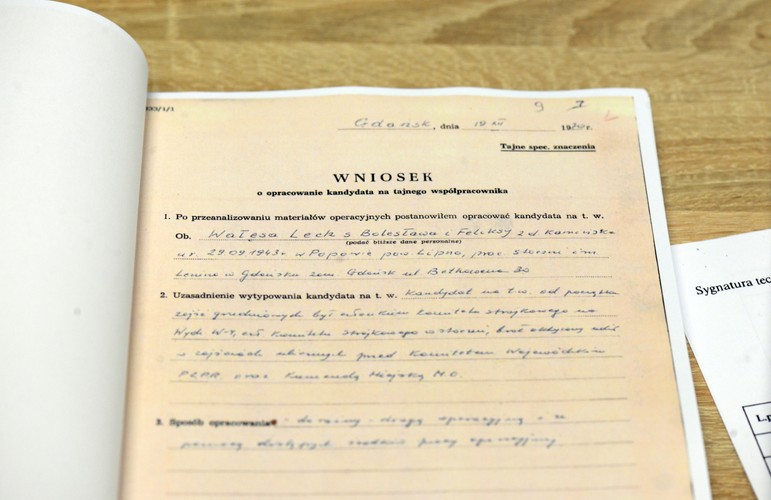 9 7
Gdańsk, dnia 19 XII 1970 r.
Tajne spec. znaczenia
WNIOSEK
o opracowanie kandydata na tajnego współpracownika
1. Po przeanalizowaniu materiałów operacyjnych postanowiłem opracować kandydata na t. w.
Ob. Wałęsa Lech s Bolesława i Feliksy z d. Kamińska
(podać bliższe dane personalne)
ur. 29.09.1943 r. w Popowie pow Lipno, prac stoczni im.
Lenina w Gdańsku zam. Gdańsk ul.
2. Uzasadnienie wytypowania kandydata na t. w. Kandydat na t.w. od początku
zajść grudniowych był członkiem komitetu strajkowego na
Wydz. W-4, czł. Komitetu Strajkowego w stoczni, brał aktywny udz.
w zajściach ulicznych przed Komitetem Wojewódzkim
PZPR oraz Komendą Miejską M.O.
3. Sposób opracowania - doraźny - drogą operacyjną i za
pomocą środków pracy operacyjnej
Sygnatura tec
L.p